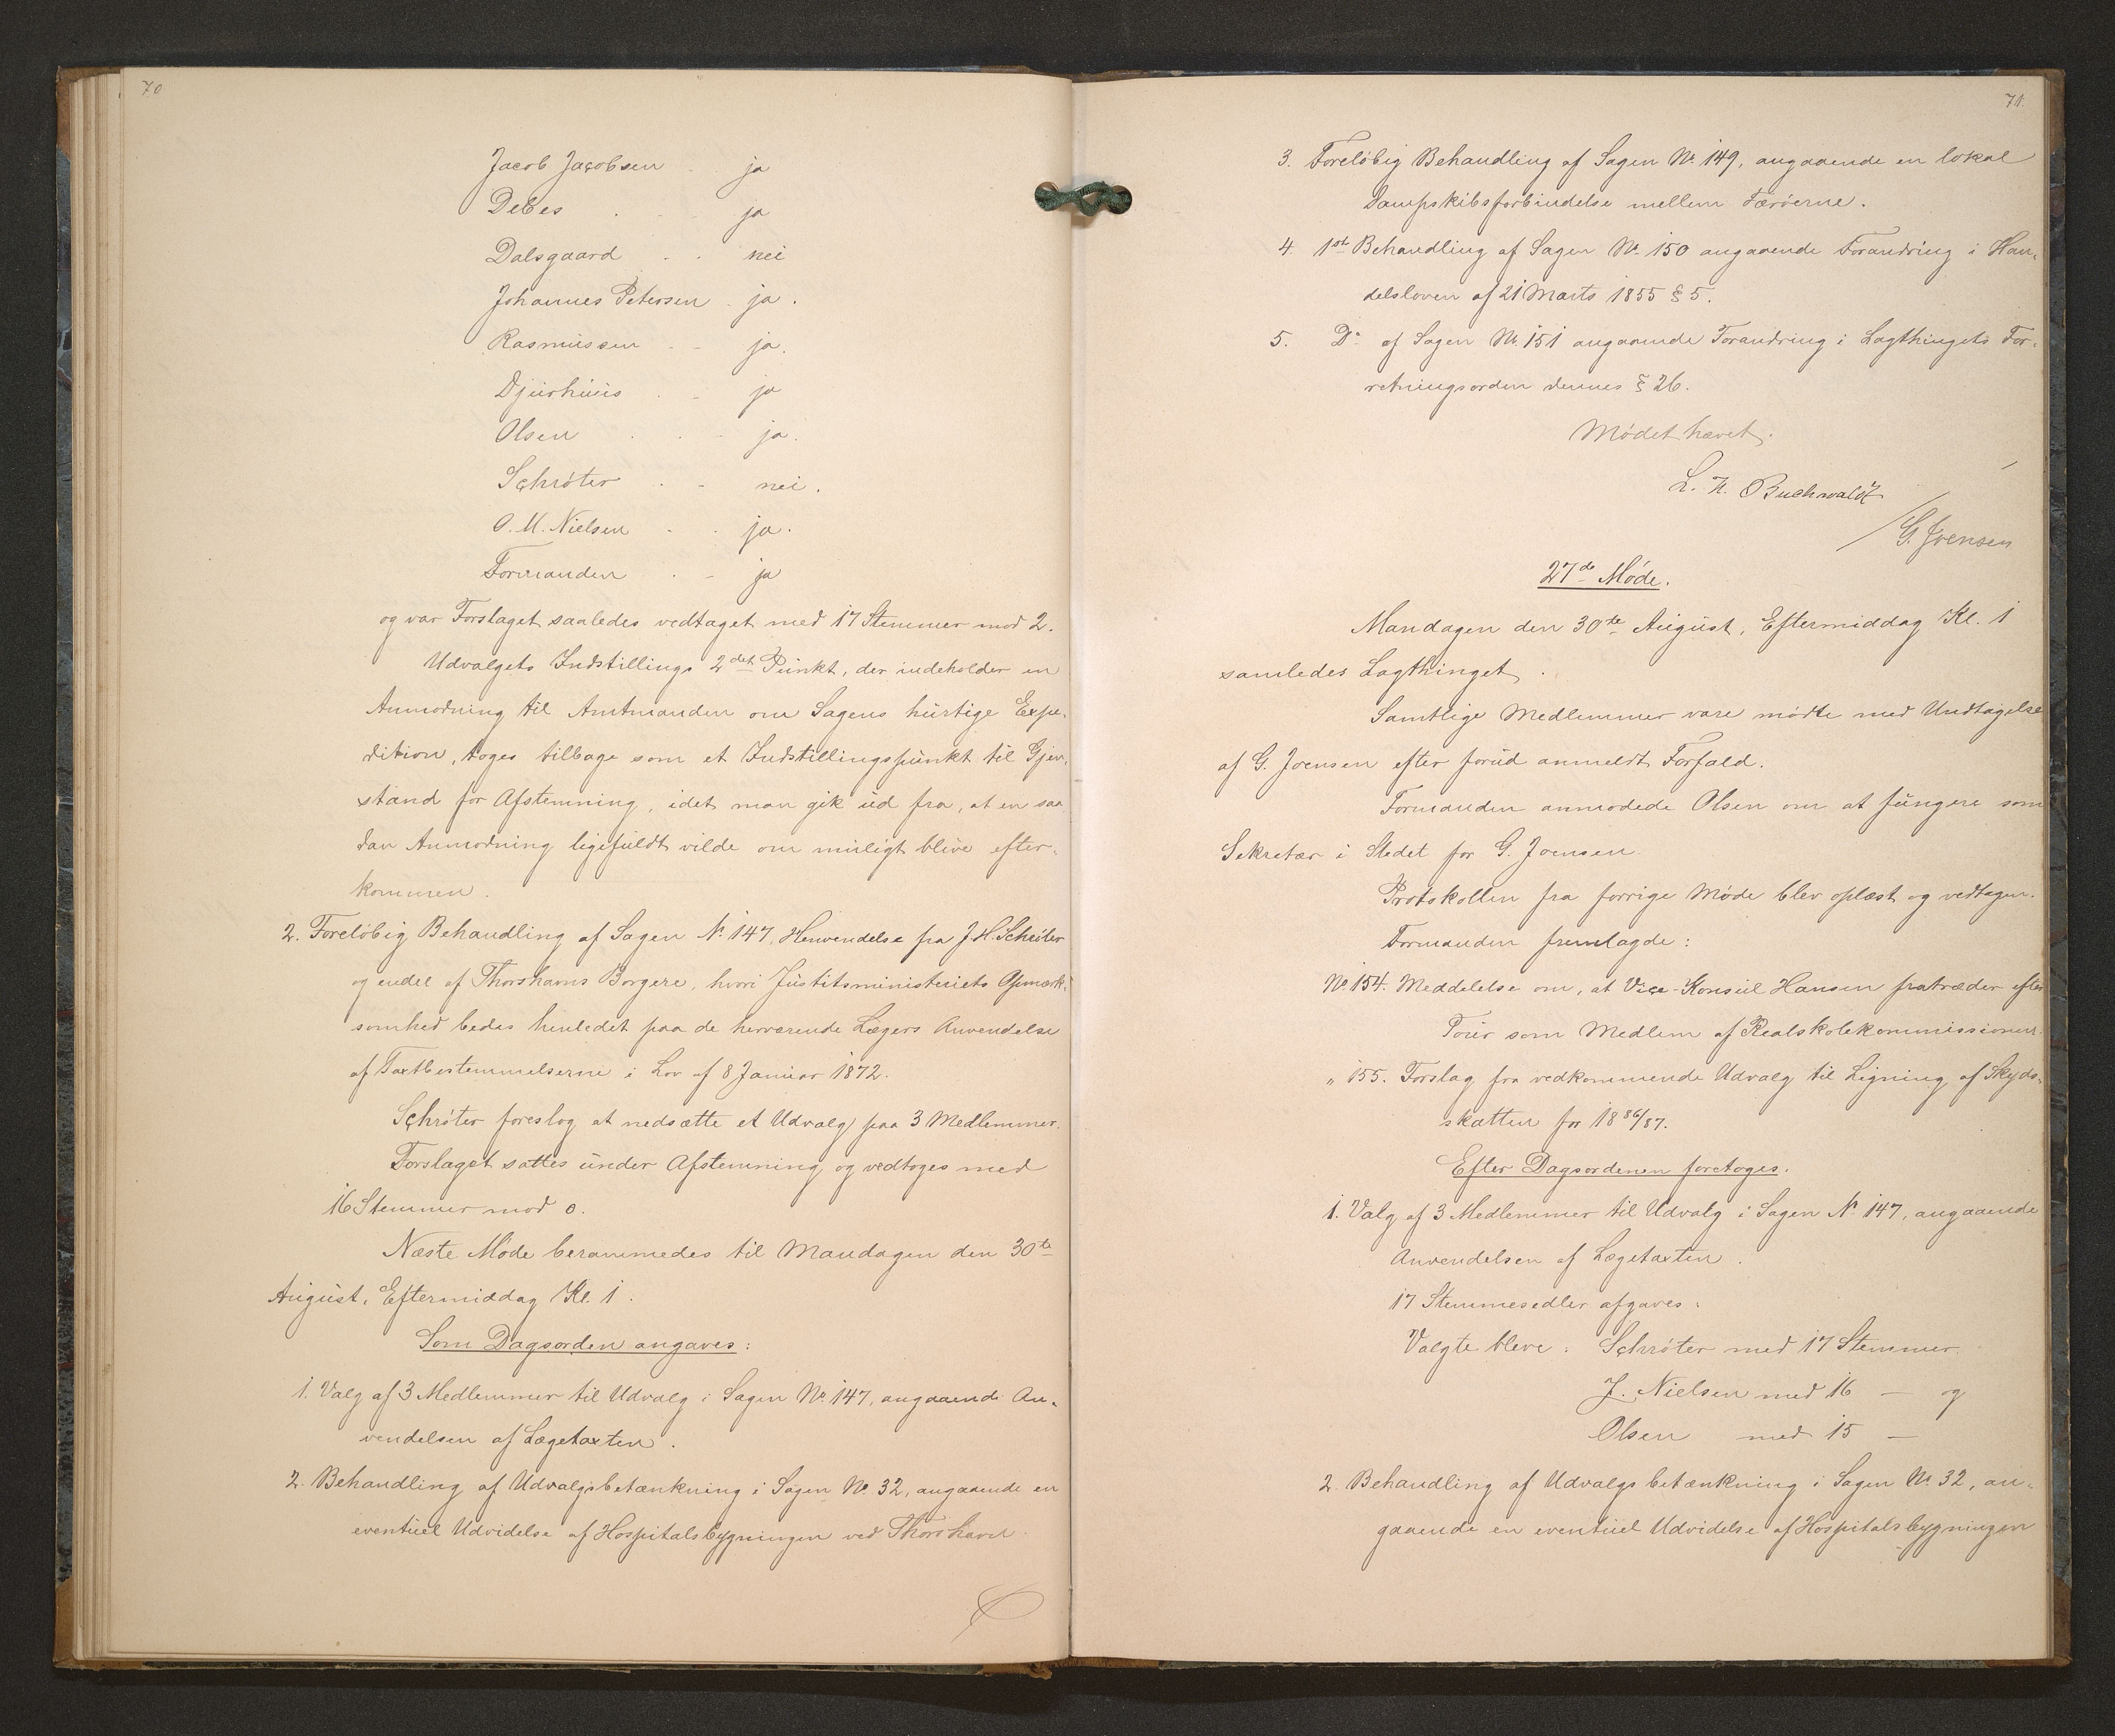 70
Jacob Jacobsen - ja
Debes . - ja
Dalsgaard . . nei
Johannes Petersen - ja.
Rasmussen - - ja.
Djurhuus . - ja
Olsen . . - ja.
Schrøter . - nei.
O. M. Nielsen - . ja.
Formanden . - ja
og var Forslaget saaledes vedtaget med 17 Stemmer mod 2.
Udvalgets Indstillings 2det Punkt, der indeholder en
Anmodning til Amtmanden om Sagens hurtige Expe-
dition, toges tilbage som et Indstillingspunkt til Gjen-
stand for Afstemning, idet man gik ud fra, at en saa
dan Anmodning ligefuldt vilde om muligt blive efter-
kommen.
2. Foreløbig Behandling af Sagen No 147, Henvendelse fra J. H. Schrøter
og endel af Thorshavns Borgere, hvori Justitsministeriets Opmærk-
somhed bedes henledet paa de herværende Lægers Anvendelse
af Taxtbestemmelserne i Lov af 8 Januar 1872.
Schrøter foreslog at nedsætte et Udvalg paa 3 Medlemmer.
Forslaget sattes under Afstemning og vedtoges med
16 Stemmer mod 0.
Næste Møde berammedes til Mandagen den 30te
August, Eftermiddag Kl. 1.
Som Dagsorden angaves:
1. Valg af 3 Medlemmer til Udvalg i Sagen No 147, angaaende An-
vendelsen af Lægetaxten.
2. Behandling af Udvalgsbetænkning i Sagen No 32, angaaende en
eventuel Udvidelse af Hospitalsbygningen ved Thorshavn
71.
3. Foreløbig Behandling af Sagen No 149, angaaende en lokal
Dampskibsforbindelse mellem Færøerne.
4. 1st Behandling af Sagen No 150 angaaende Forandring i Han-
delsloven af 21 Marts 1855 § 5.
5. Do af Sagen No 151 angaaende Forandring i Lagthingets For-
retningsorden dennes § 26.
Mødet hævet.
L. N. Buchwaldt
/ G. Joensen
27de Møde.
Mandagen den 30te August, Eftermiddag Kl. 1
samledes Lagthinget.
Samtlige Medlemmer vare mødte med Undtagelse
af G. Joensen efter forud anmeldt Forfald.
Formanden anmodede Olsen om at fungere som
Sekretær i Stedet for G. Joensen
Protokollen fra forrige Møde blev oplæst og vedtagen.
Formanden fremlagde:
No 154. Meddelelse om, at Vice-Konsul Hansen fratræder efter
Tour som Medlem af Realskolekommissionen.
" 155. Forslag fra vedkommende Udvalg til Ligning af Skyds-
skatten for 1886/87.
Efter Dagsordenen foretoges.
1. Valg af 3 Medlemmer til Udvalg i Sagen No 147, angaaende
Anvendelsen af Lægetaxten.
17 Stemmesedler afgaves.
Valgte bleve: Schrøter med 17 Stemmer
J. Nielsen med 16 — og
Olsen med 15 —
2. Behandling af Udvalgsbetænkning i Sagen No 32, an-
gaaende en eventuel Udvidelse af Hospitalsbygningen